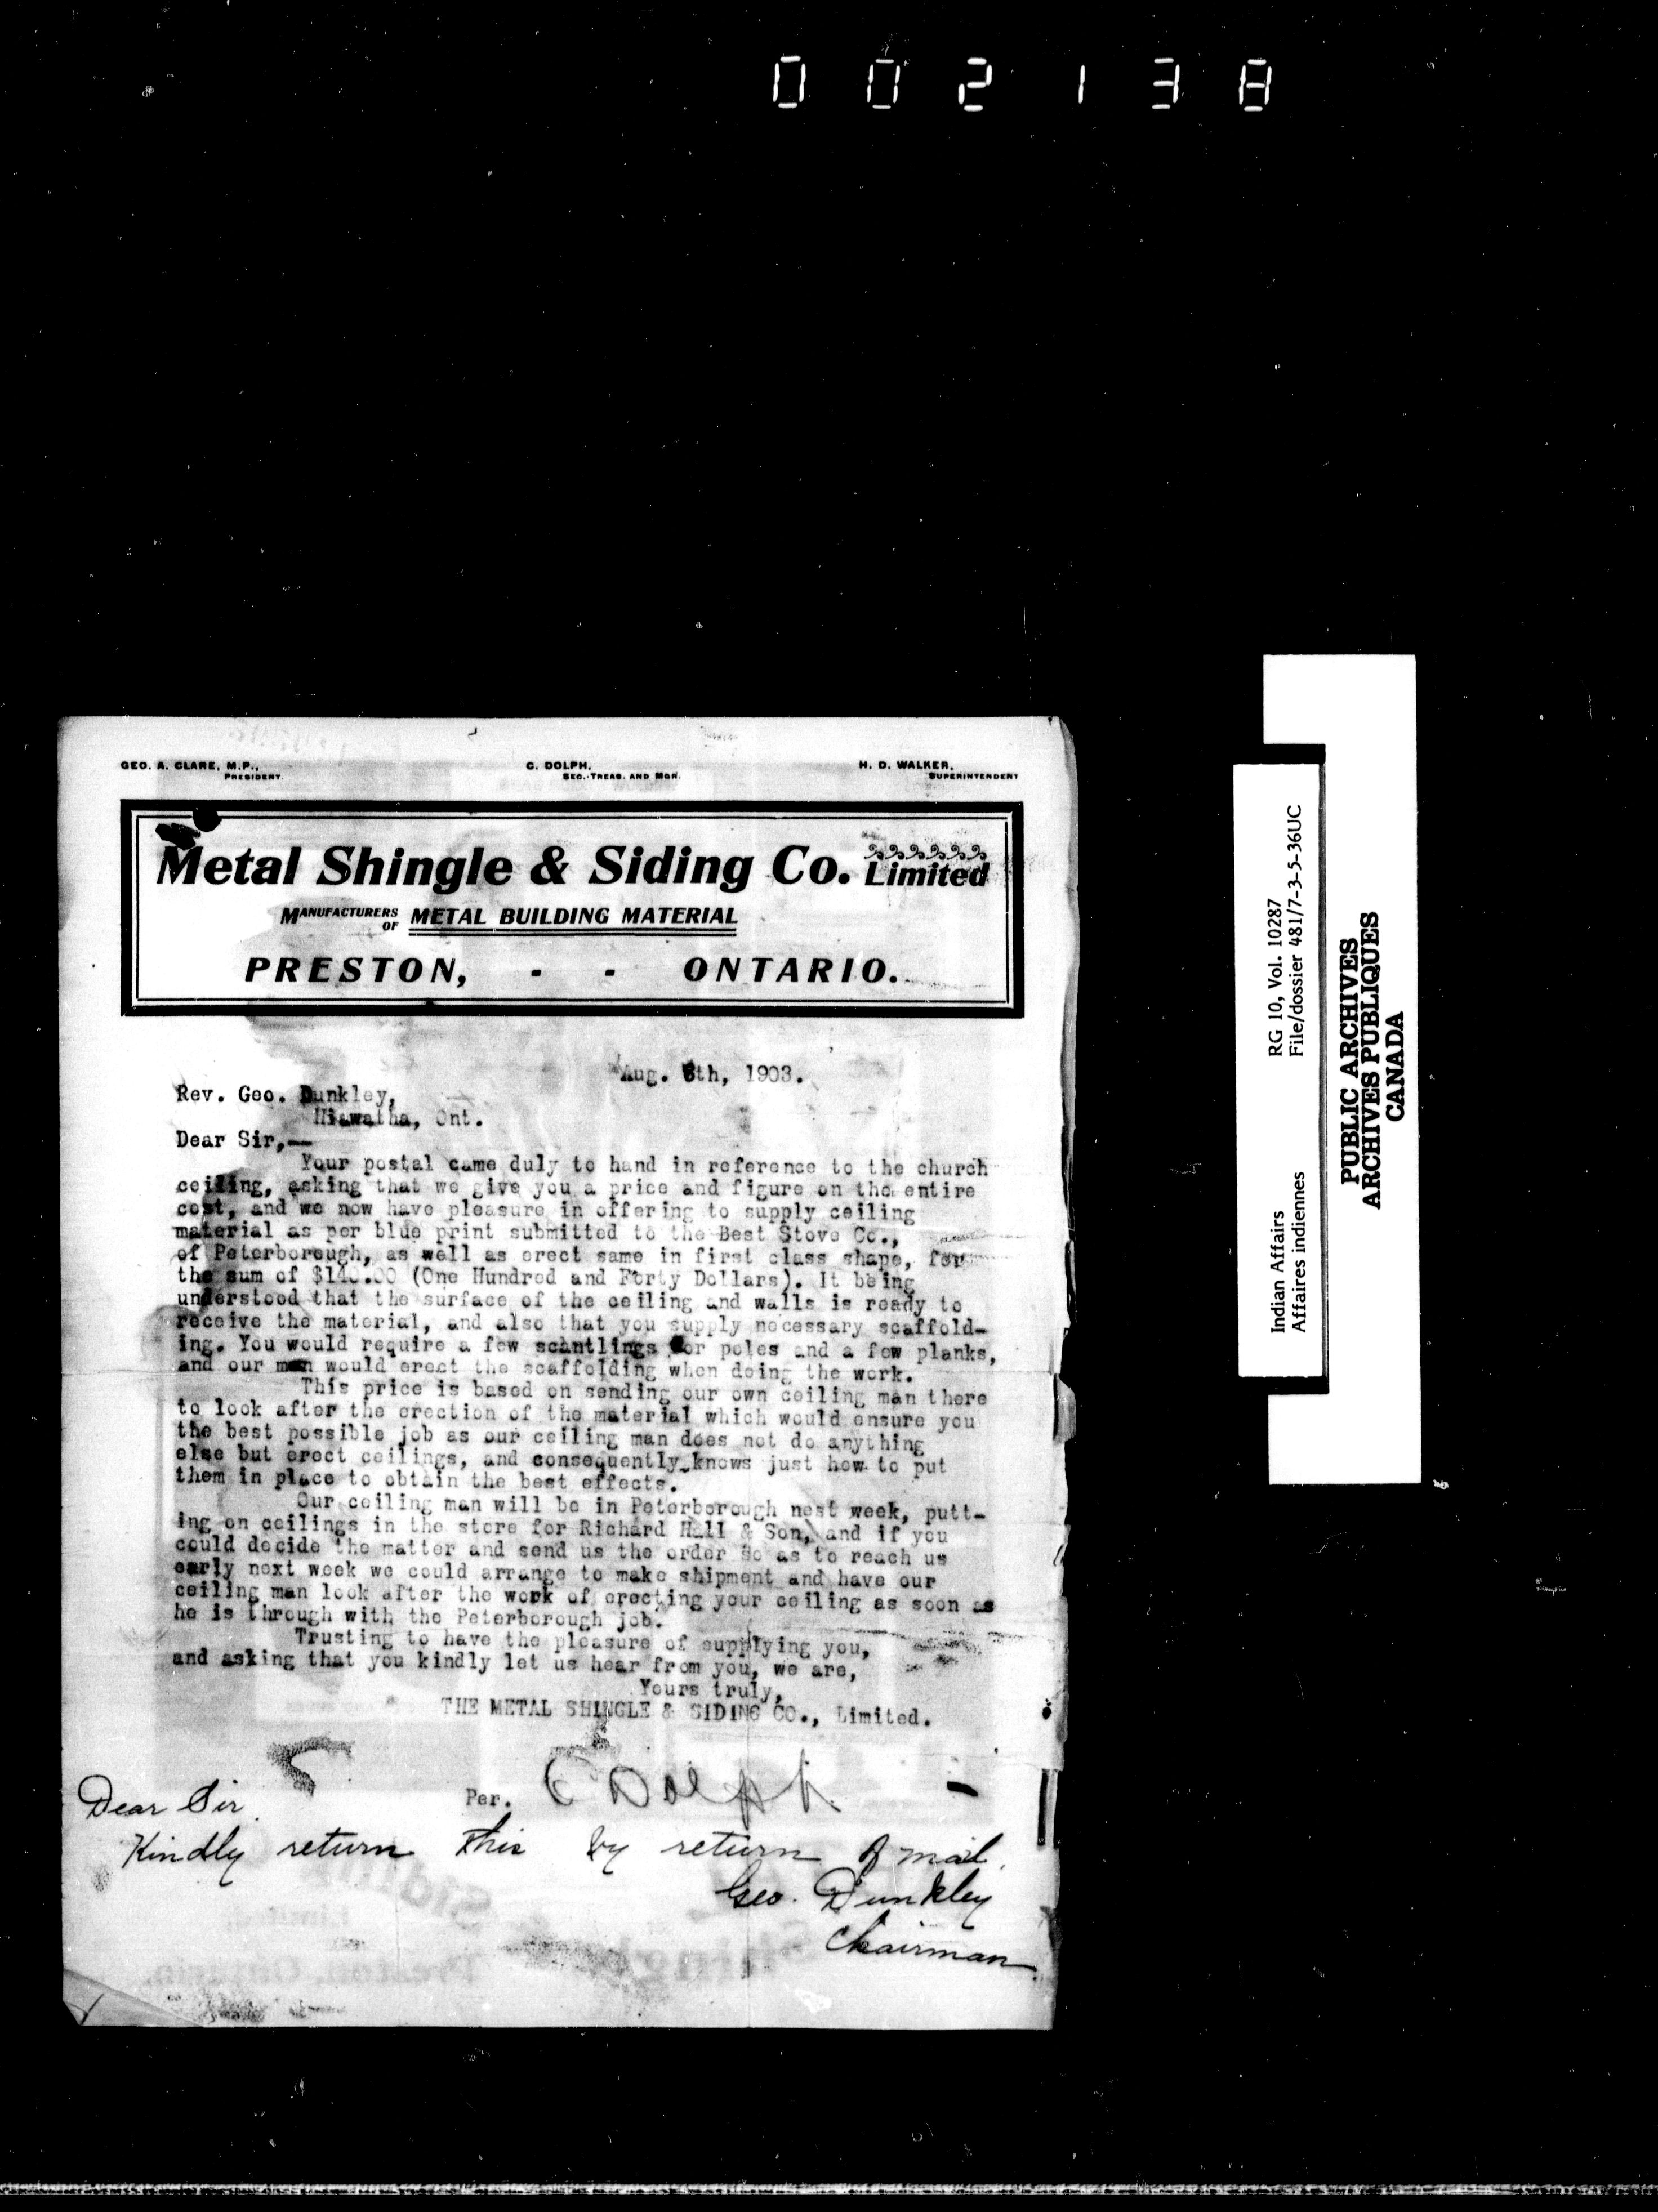 002138
GEO. A. CLARE, M.P.,
PRESIDENT.
C. DOLPH,
SEC.-TREAS. AND MGR.
H. D. WALKER,
SUPERINTENDENT
Metal Shingle & Siding Co. Limited
MANUFACTURERS OF METAL BUILDING MATERIAL
PRESTON, - - ONTARIO.
Aug. 8th, 1903.
Rev. Geo. Dunkley,
Hiawatha, Ont.
Dear Sir,—
Your postal came duly to hand in reference to the church
ceiling, asking that we give you a price and figure on the entire
cost, and we now have pleasure in offering to supply ceiling
material as per blue print submitted to the Best Stove Co.,
of Peterborough, as well as erect same in first class shape, for
the sum of $140.00 (One Hundred and Forty Dollars). It being
understood that the surface of the ceiling and walls is ready to
receive the material, and also that you supply necessary scaffold-
ing. You would require a few scantlings for poles and a few planks,
and our man would erect the scaffolding when doing the work.
This price is based on sending our own ceiling man there
to look after the erection of the material which would ensure you
the best possible job as our ceiling man does not do anything
else but erect ceilings, and consequently knows just how to put
them in place to obtain the best effects.
Our ceiling man will be in Peterborough nest week, putt-
ing on ceilings in the store for Richard Hall & Son, and if you
could decide the matter and send us the order so as to reach us
early next week we could arrange to make shipment and have our
ceiling man look after the work of erecting your ceiling as soon as
he is through with the Peterborough job.
Trusting to have the pleasure of supplying you,
and asking that you kindly let us hear from you, we are,
Yours truly,
THE METAL SHINGLE & SIDING CO., Limited.
Per. C Dolph
Dear Sir
Kindly return this by return of mail.
Geo. Dunkley
Chairman
Indian Affairs RG 10, Vol. 10287
Affaires indiennes File/dossier 481/7-3-5-36UC
PUBLIC ARCHIVES
ARCHIVES PUBLIQUES
CANADA